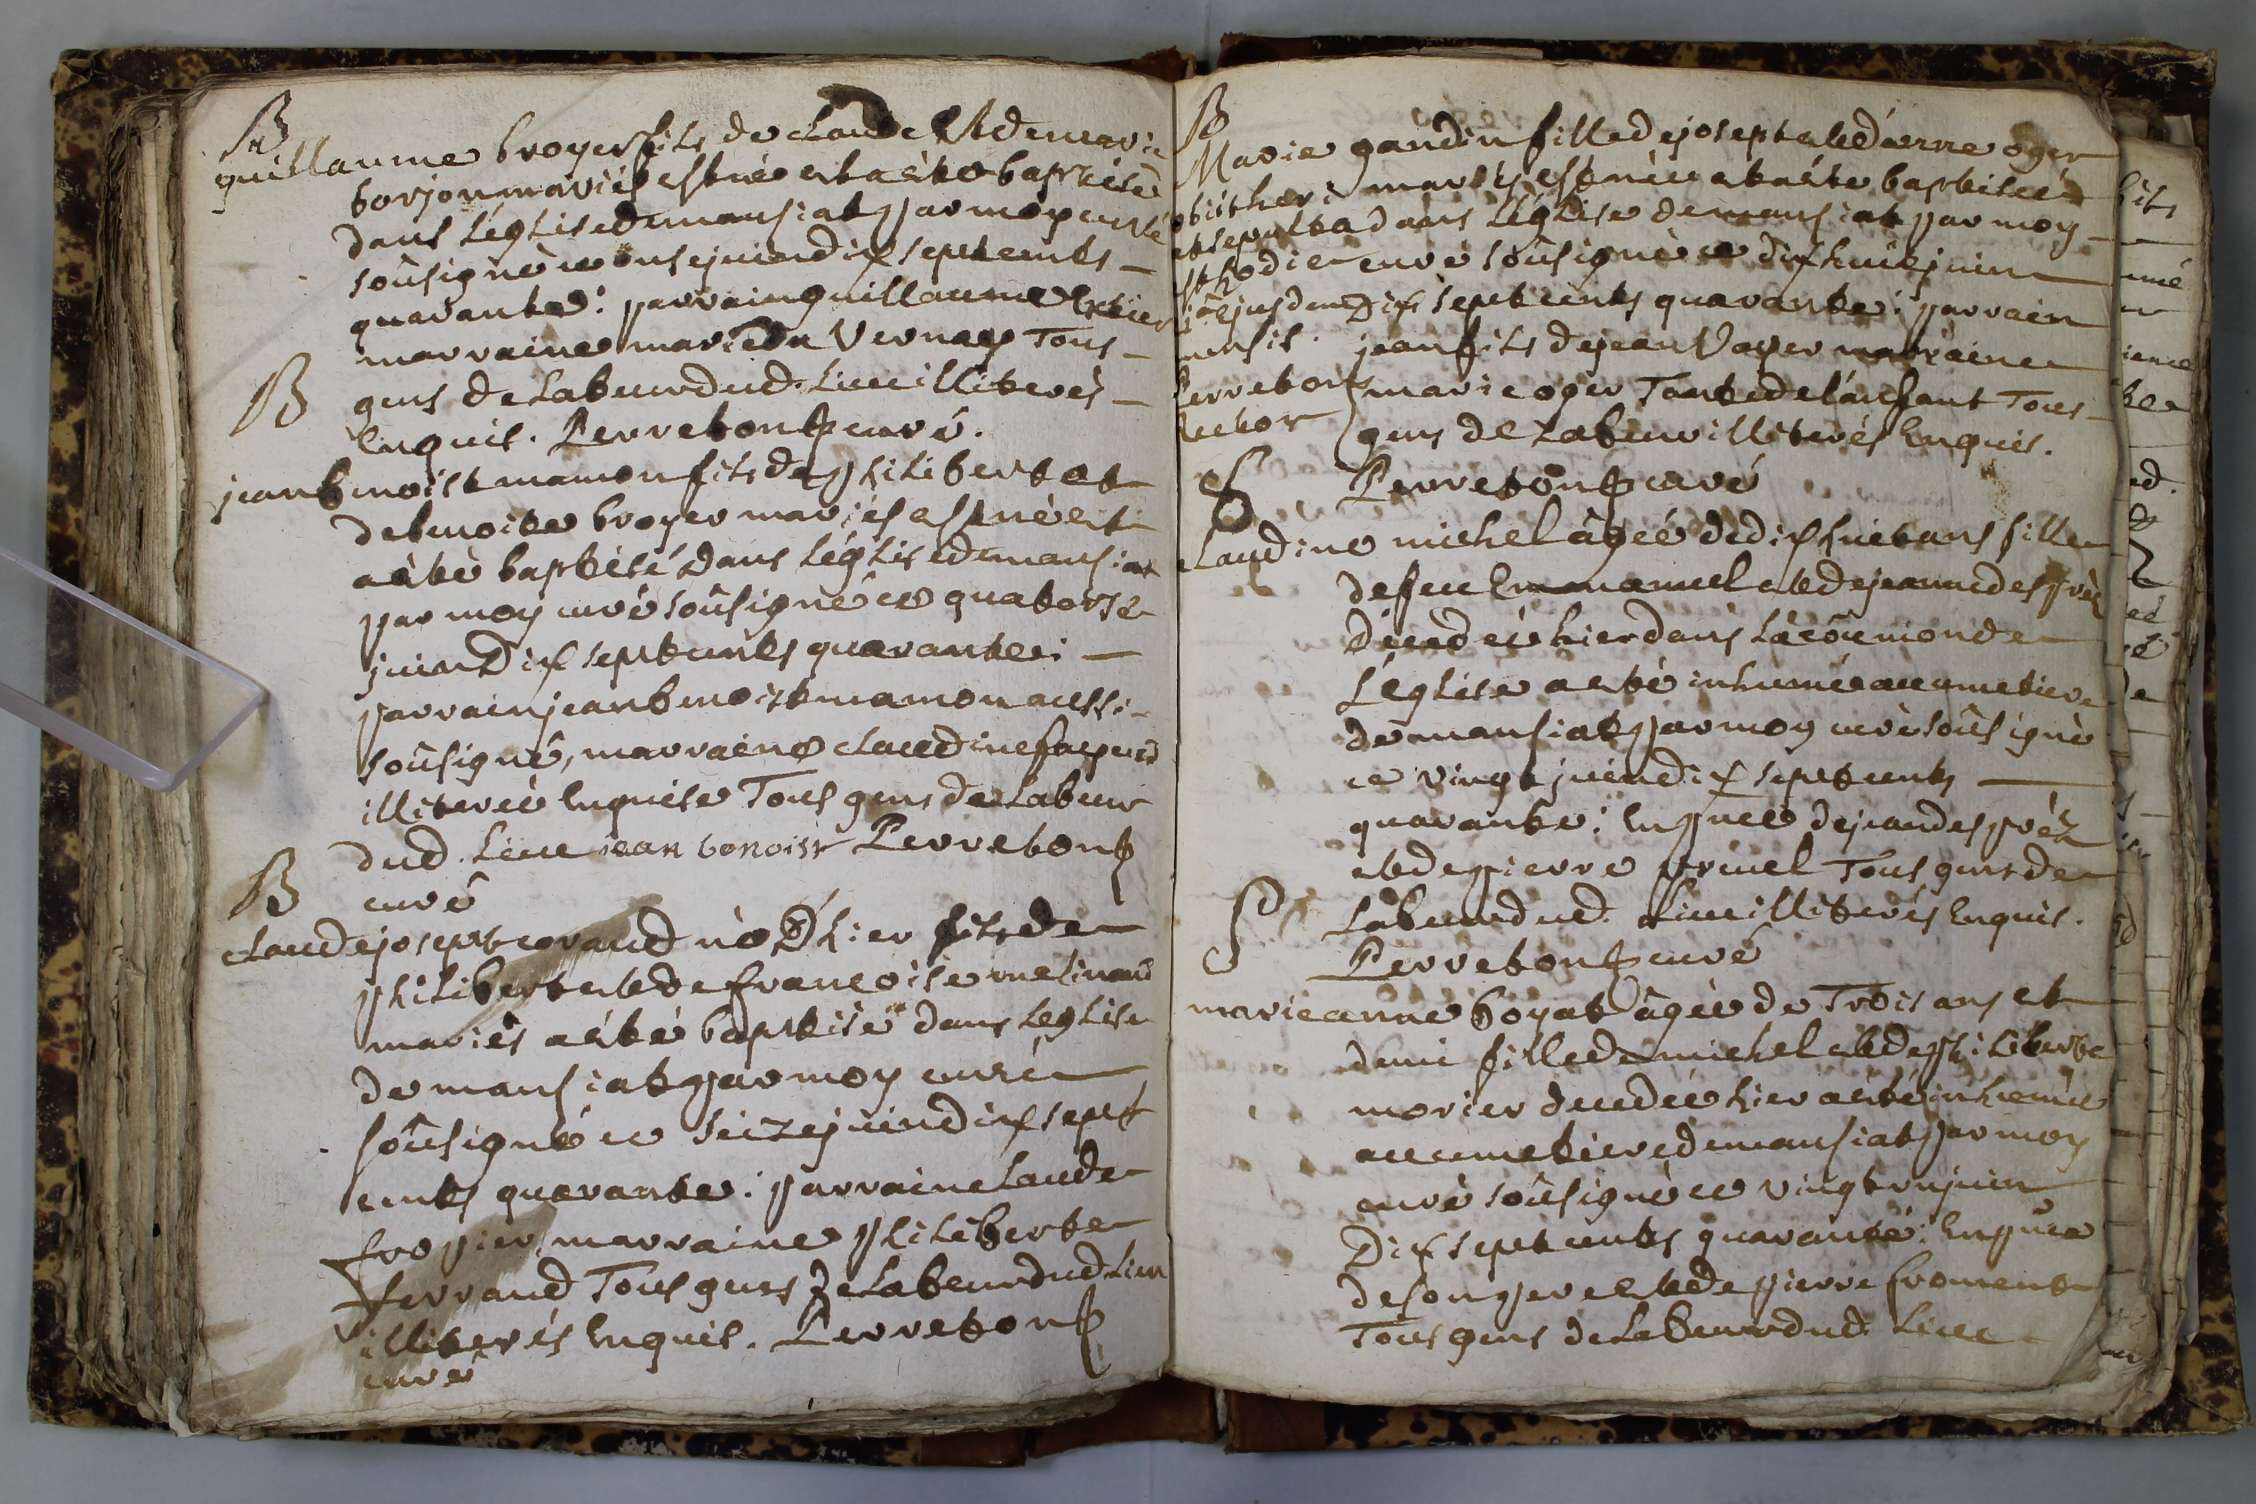 B
guillaume broyer fils de claude et de marie
borjon mariés est né et a été baptisé
dans l'église de mansiat par moy curé
soûsigné ce onse juin dix sept cents
quarante : parrain guillaume
marraine marie du Vernay Tous
B
gens de labeur dud. lieu illiterés
Enquis. Perretonf curé.
jean benoist mamon fils de philibert et
de benoite broyer mariés est né et
a été baptisé dans l'église de mansiat
par moy curé soûsigné ce quatorse
juin Dix sept cents quarante :
parrain jean benoist mamon aussi
soûsigné, marraine claudine
illiterée Enquise Tous gens de labeur
dud. lieu jean benoist Perretonf
curé
B
claude joseph corand né D'hier fils de
philibert et de françoise melinand
mariés a été baptisé dans l'eglise
de mansiat par moy curé
soûsigné ce seize juin dix sept
cents quarante : parrain claude
fropier, marraine philiberte
ferrand Tous gens de labeur dud lieu
illiterés Enquis. Perretonf
curé
B
Marie gandin fille de joseph et de pierre oger
obiit heri mariés est née et a été baptisée
et sepulta dans l'église de mansiat par moy
est hodie curé soûsigné ce dix huit juin
ejusdem Dix sept cents quarante : parrain
mensis. jean fils de jean Vayer marraine
Perretonf marie oger Tante de l'enfant Tous
rector gens de labeur illiterés Enquis.
Perretonf curé
S
claudine michel âgée de dix huit ans fille
de feu Emmanuel et de jeanne desprèz
décédée hier dans la cômunion de
l'église a eté inhumée au cimetiere
de mansiat par moy curé soûsigné
ce vingt juin dix sept cents
quarante : En pnce de jean desprèz
et de pierre Tous gens de
labeur dud. lieu illiterés Enquis.
Perretonf curé
S
marie anne boyat âgée de Trois ans et
demi fille de michel et de philiberte
morier decedée hier a été inhumée
au cimetiere de mansiat par moy
curé soûsigné ce vingt un juin
Dix sept cents quarante : En pnce
de son pere et de pierre froment
Tous gens de labeur dud. lieu